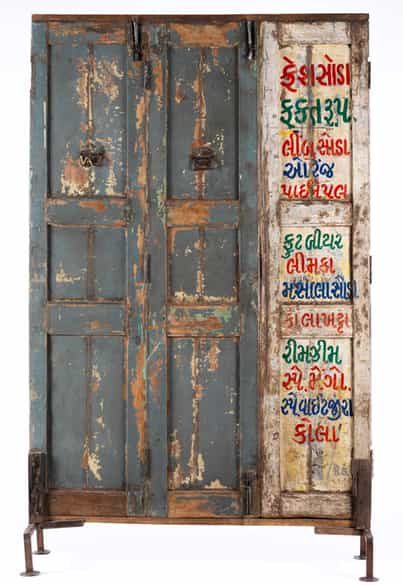 ફ્રેશસોડા
ફકતરૂપ.
લીંબુ સોડા
ઓરેંજ
પાઈનેપલ
ફ્રુટ બીયર
લીમકા
મસાલા સોડા
કાલાખટ્ટા
રીમઝીમ
સ્પે. મેંગો.
સ્પે. વાઈટજીરા
કોલા